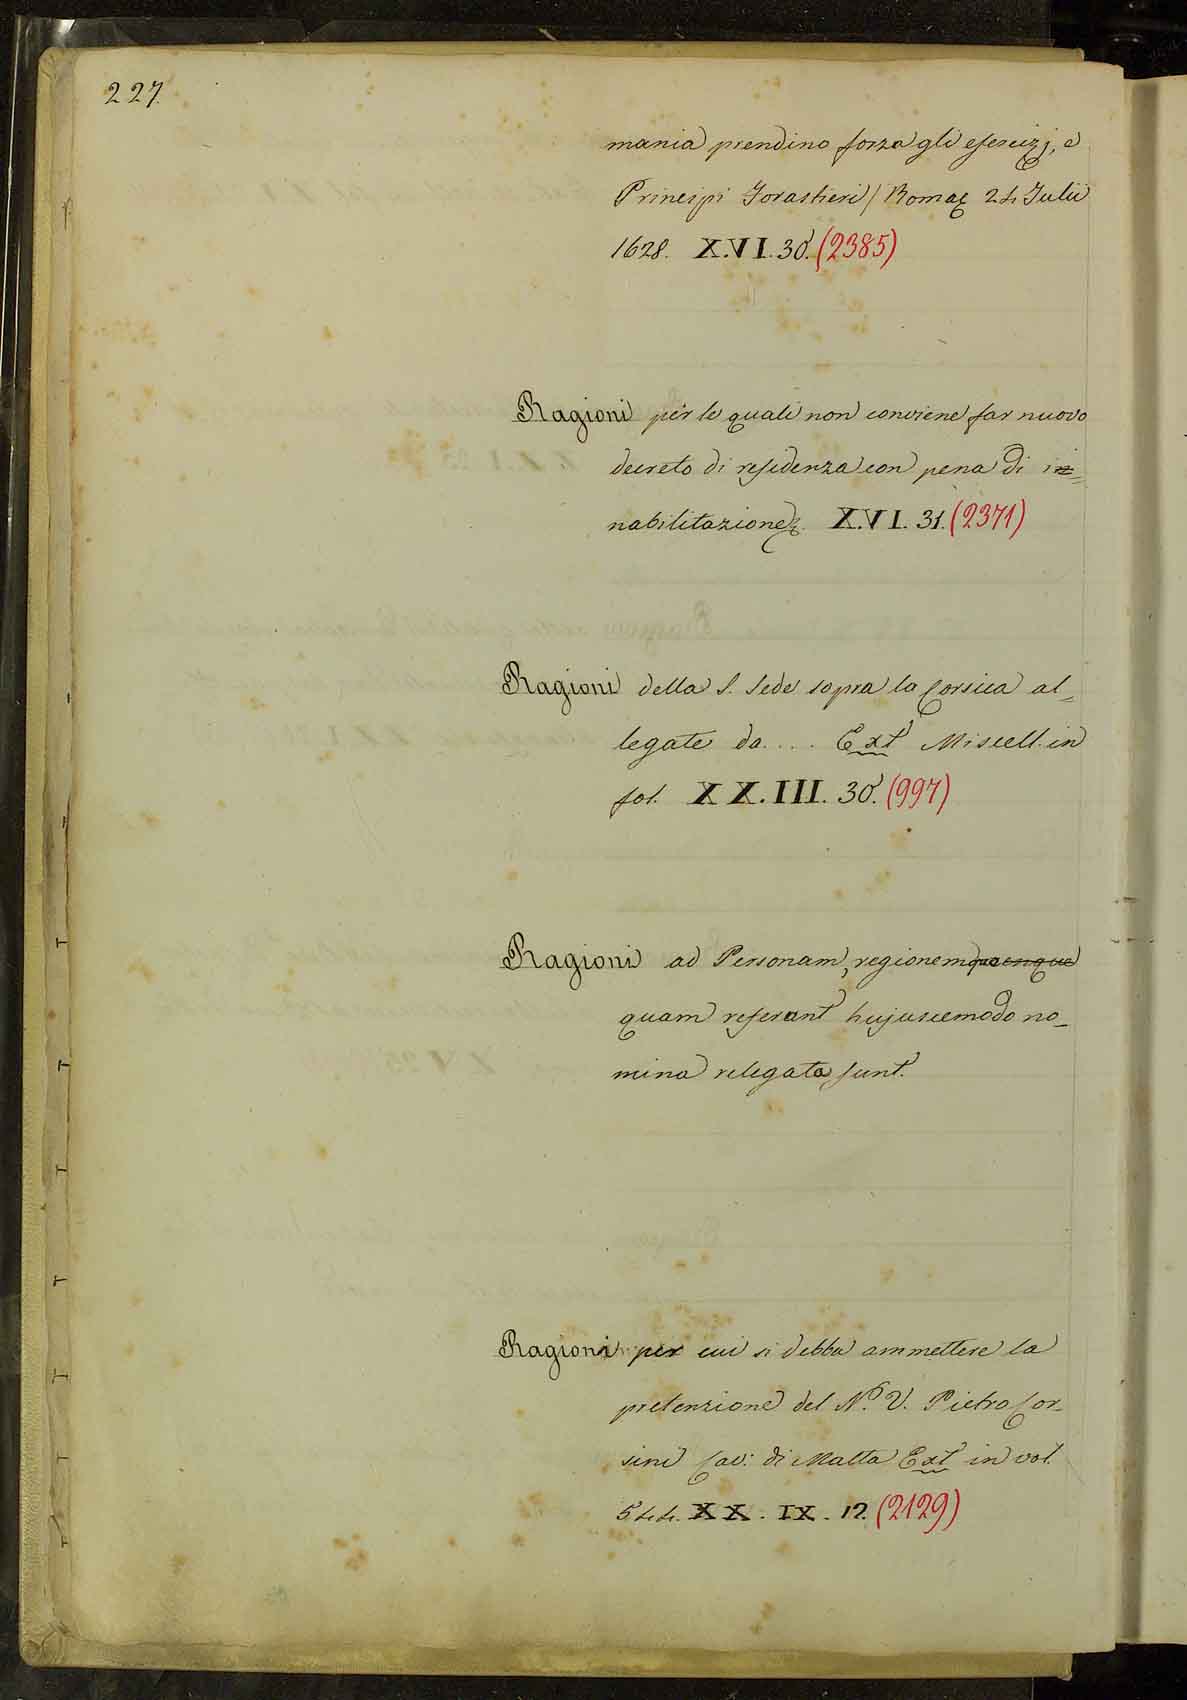 227.
mania prendino forza gli esercizj, e
Principi Forastieri / Romae 24 Julii
1628. X.VI.30. (2385)
Ragioni per le quali non conviene far nuovo
decreto di residenza con pena di in=
nabilitazione. X.VI.31. (2371)
Ragioni della S. Sede sopra la Corsica al=
legate da.... Ext Miscell. in
fol. XX.III.30. (997)
Ragioni ad Personam, regionem quamque
quam referant hujuscemodo no-
mina relegata sunt.
Ragioni per cui si debba ammettere la
pretenzione del N. V. Pietro Cor-
sini Cav: di Malta Ext in vol.
544. XX.IX.12. (2129)